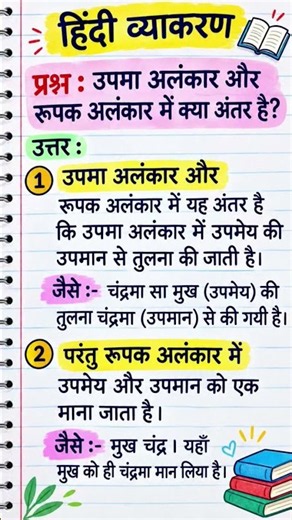 हिंदी व्याकरण
प्रश्न : उपमा अलंकार और
रूपक अलंकार में क्या अंतर है?
उत्तर :
1 उपमा अलंकार और
रूपक अलंकार में यह अंतर है
कि उपमा अलंकार में उपमेय की
उपमान से तुलना की जाती है।
जैसे :- चंद्रमा सा मुख (उपमेय) की
तुलना चंद्रमा (उपमान) से की गयी है।
2 परंतु रूपक अलंकार में
उपमेय और उपमान को एक
माना जाता है।
जैसे :- मुख चंद्र। यहाँ
मुख को ही चंद्रमा मान लिया है।